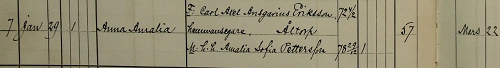 F. Carl Axel Ansgarius Eriksson, 72 4/2
7 Jan 29 1 Anna Amalia Hemmansegare, Åtorp 57 Mars 22
M. E. E. Amalia Sofia Pettersson 78 22/2 1